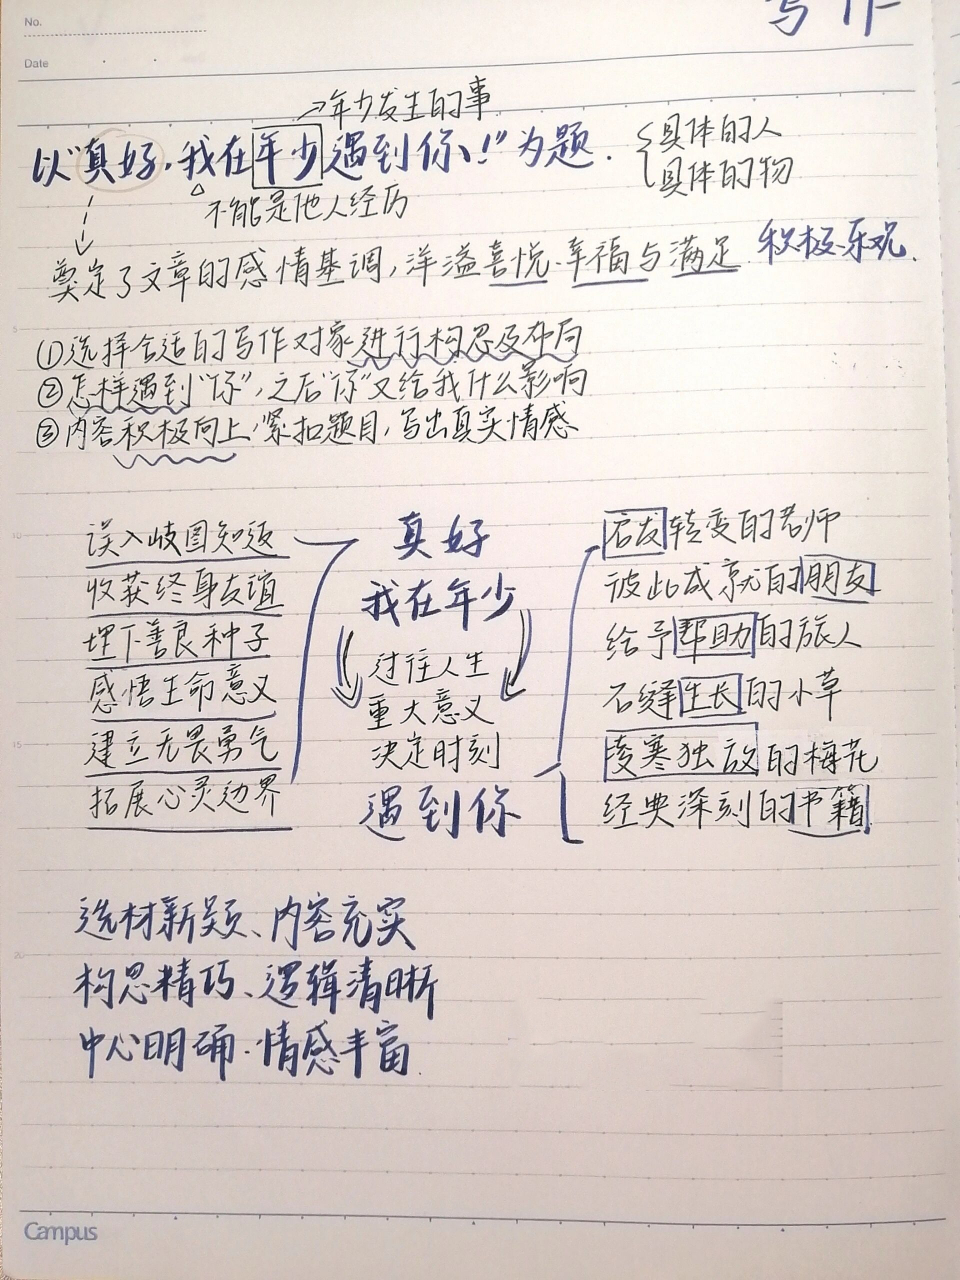 No.
写作
Date
→年少发生的事
以“真好,我在年少遇到你!”为题.
具体的人
具体的物
不能是他人经历
奠定了文章的感情基调,洋溢喜悦、幸福与满足 积极、乐观.
①选择合适的写作对象进行构思及布局
②怎样遇到“你”,之后“你”又给我什么影响
③内容积极向上,紧扣题目,写出真实情感
误入歧图知返
收获终身友谊
埋下善良种子
感悟生命意义
建立无畏勇气
拓展心灵边界
真好
我在年少
过往人生
重大意义
决定时刻
遇到你
启发转变的老师
彼此成就的朋友
给予帮助的旅人
石缝生长的小草
凌寒独放的梅花
经典深刻的书籍
选材新颖、内容充实
构思精巧、逻辑清晰
中心明确.情感丰富.
Campus